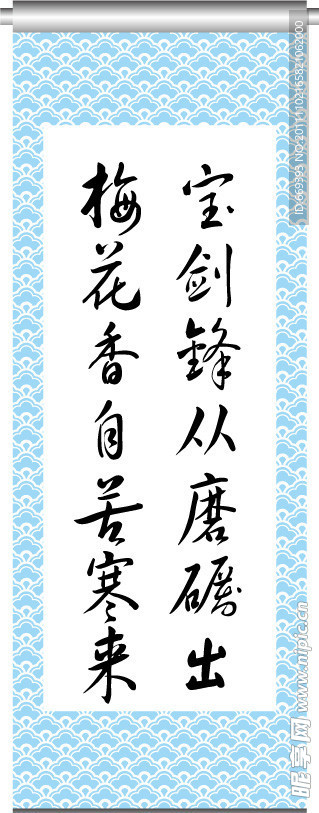 宝剑锋从磨砺出
梅花香自苦寒来
昵享网 www.nipic.cn
ID:669393 NO:20111102165821062000